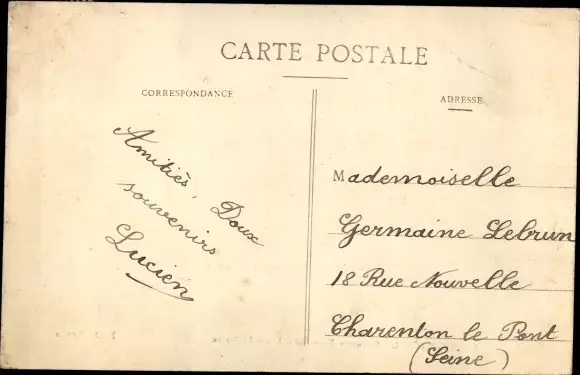 CARTE POSTALE
CORRESPONDANCE
ADRESSE
Amitiés, Doux
souvenirs
Lucien
Mademoiselle
Germaine Lebrun
18 Rue Nouvelle
Charenton le Pont
(Seine)